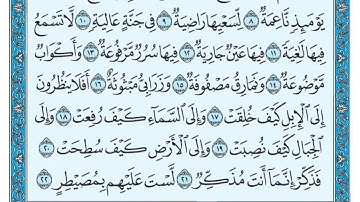 يَوْمَئِذٍ نَّاعِمَةٌ ٨ لِّسَعْيِهَا رَاضِيَةٌ ٩ فِي جَنَّةٍ عَالِيَةٍ ١٠ لَّا تَسْمَعُ
فِيهَا لَٰغِيَةً ١١ فِيهَا عَيْنٌ جَارِيَةٌ ١٢ فِيهَا سُرُرٌ مَّرْفُوعَةٌ ١٣ وَأَكْوَابٌ
مَّوْضُوعَةٌ ١٤ وَنَمَارِقُ مَصْفُوفَةٌ ١٥ وَزَرَابِيُّ مَبْثُوثَةٌ ١٦ أَفَلَا يَنظُرُونَ
إِلَى ٱلْإِبِلِ كَيْفَ خُلِقَتْ ١٧ وَإِلَى ٱلسَّمَآءِ كَيْفَ رُفِعَتْ ١٨ وَإِلَى
ٱلْجِبَالِ كَيْفَ نُصِبَتْ ١٩ وَإِلَى ٱلْأَرْضِ كَيْفَ سُطِحَتْ ٢٠
فَذَكِّرْ إِنَّمَآ أَنتَ مُذَكِّرٌ ٢١ لَّسْتَ عَلَيْهِم بِمُصَيْطِرٍ ٢٢